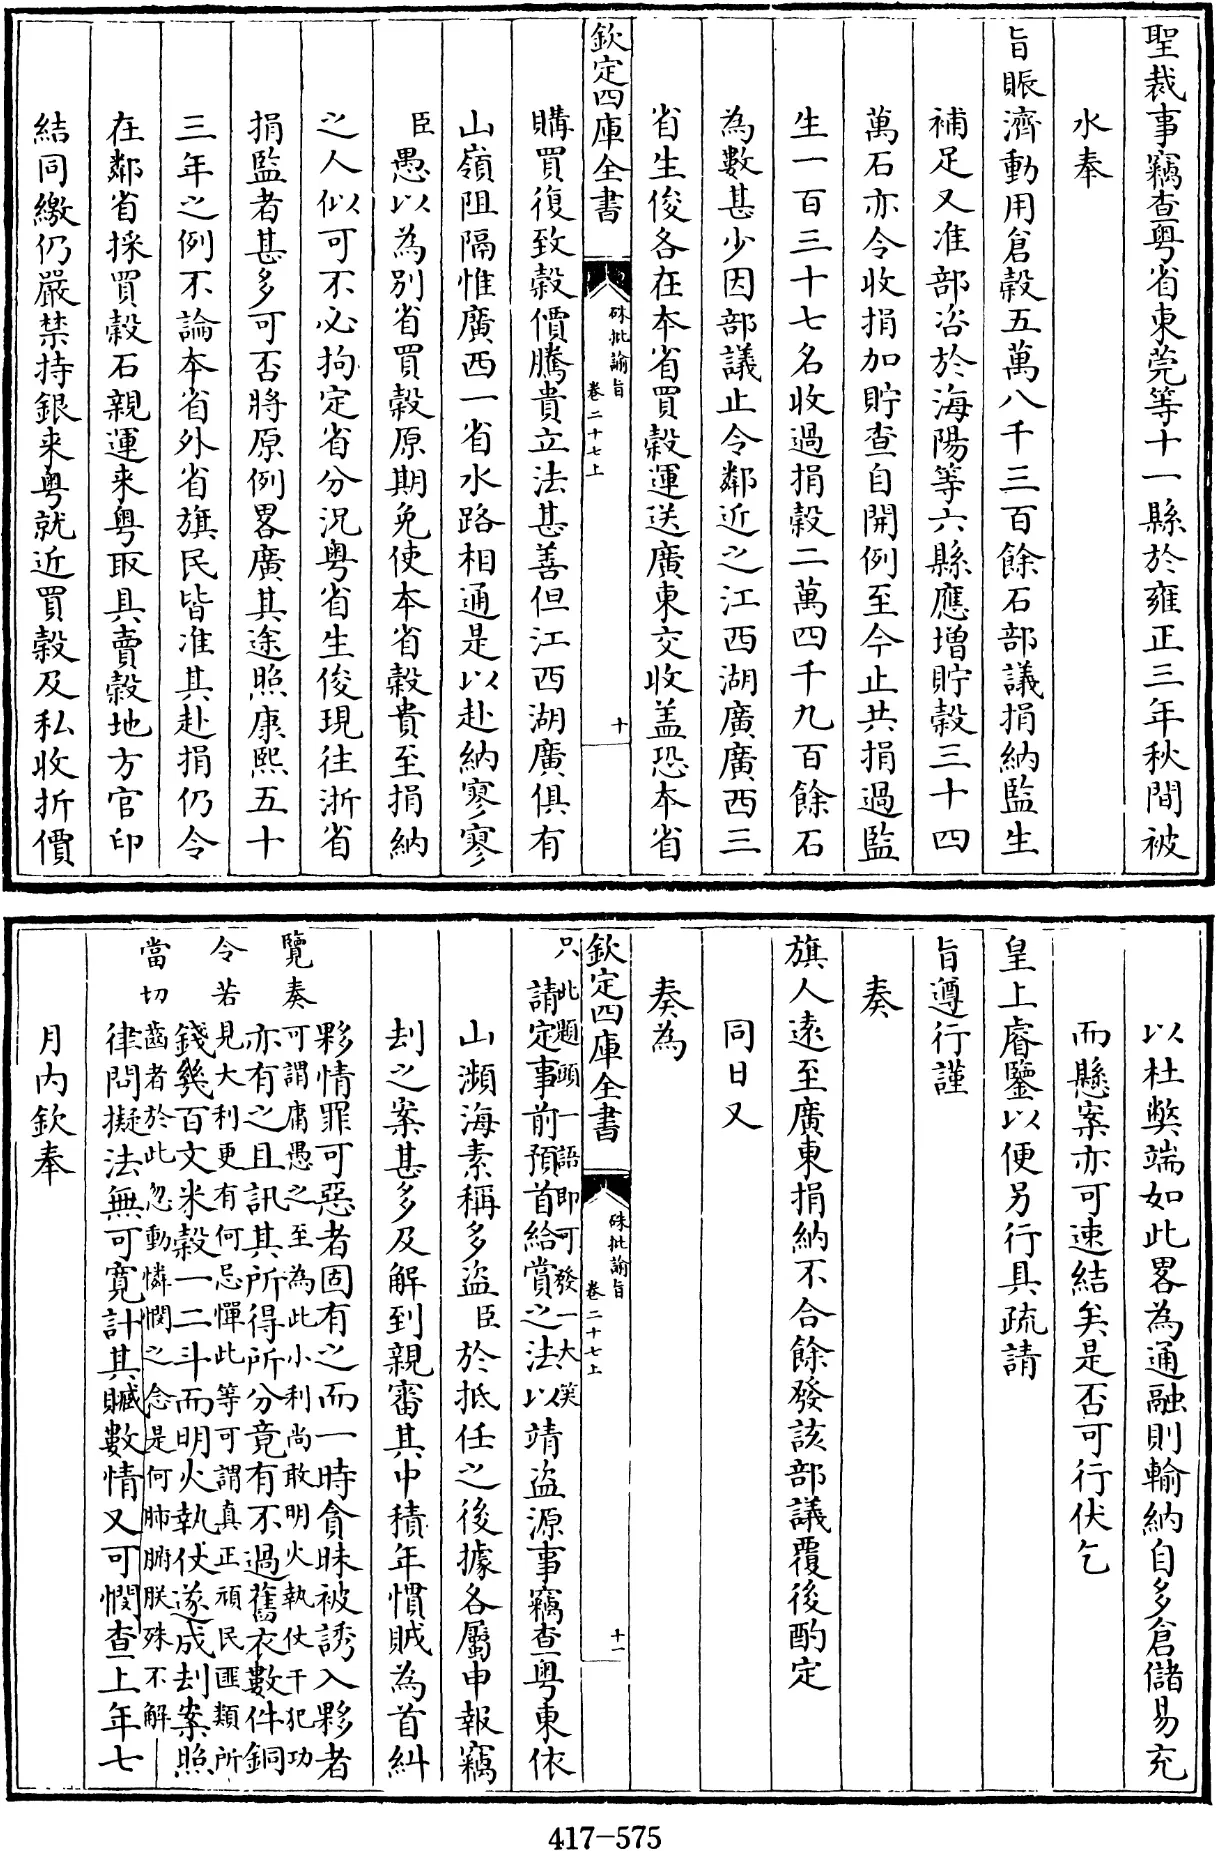 聖裁事竊查粵省東莞等十一縣於雍正三年秋間被
水奉
旨賑濟動用倉穀五萬八千三百餘石部議捐納監生
補足又准部咨於海陽等六縣應增貯穀三十四
萬石亦令收捐加貯查自開例至今止共捐過監
生一百三十七名收過捐穀二萬四千九百餘石
為數甚少因部議止令鄰近之江西湖廣廣西三
省生俊各在本省買穀運送廣東交收盖恐本省
欽定四庫全書
硃批諭旨
卷二十七上
十
購買復致穀價騰貴立法甚善但江西湖廣俱有
山嶺阻隔惟廣西一省水路相通是以赴納寥寥
臣愚以為別省買穀原期免使本省穀貴至捐納
之人似可不必拘定省分況粵省生俊現往浙省
捐監者甚多可否將原例畧廣其途照康熙五十
三年之例不論本省外省旗民皆准其赴捐仍令
在鄰省採買穀石親運來粵取具賣穀地方官印
結同繳仍嚴禁持銀來粵就近買穀及私收折價
以杜獘端如此畧為通融則輸納自多倉儲易充
而懸案亦可速結矣是否可行伏乞
皇上睿鑒以便另行具疏請
旨遵行謹
奏
旗人遠至廣東捐納不合餘發該部議覆後酌定
同日又
奏為
欽定四庫全書
硃批諭旨
卷二十七上
十一
請定事前預首給賞之法以靖盜源事竊查粵東依
只此題頭一語即可發一大笑
山瀕海素稱多盜臣於抵任之後據各屬申報竊
刦之案甚多及解到親審其中積年慣賊為首糾
夥情罪可惡者固有之而一時貪昧被誘入夥者
覽奏可謂庸愚之至為此小利尚敢明火執仗干犯功
亦有之且訊其所得所分竟有不過舊衣數件銅
令若見大利更有何忌憚此等可謂真正頑民匪類所
錢幾百文米穀一二斗而明火執仗遂成刦案照
當切齒者於此忽動憐憫之念是何肺腑朕殊不解
律問擬法無可寛計其贓數情又可憫查上年七
月內欽奉
417-575